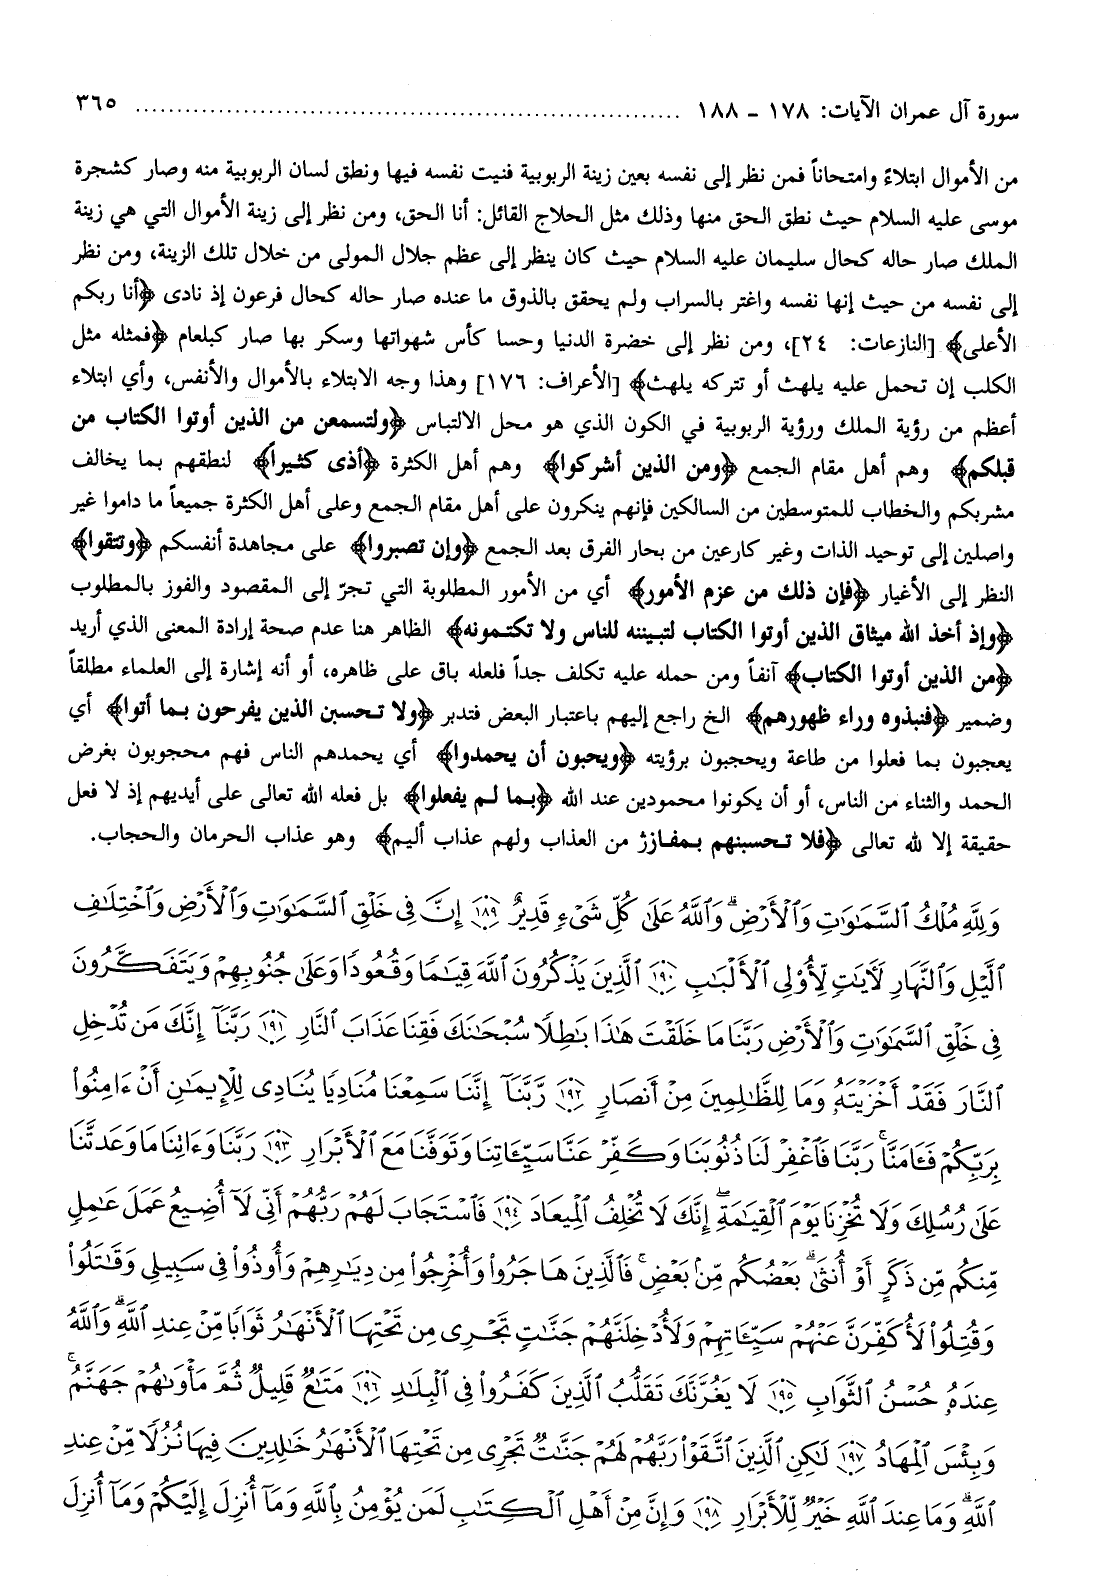 سورة آل عمران الآيات: ١٧٨ - ١٨٨ ................................................ ٣٦٥
من الأموال ابتلاءً وامتحاناً فمن نظر إلى نفسه بعين زينة الربوبية فنيت نفسه فيها ونطق لسان الربوبية منه وصار كشجرة
موسى عليه السلام حيث نطق الحق منها وذلك مثل الحلاج القائل: أنا الحق، ومن نظر إلى زينة الأموال التي هي زينة
الملك صار حاله كحال سليمان عليه السلام حيث كان ينظر إلى عظم جلال المولى من خلال تلك الزينة، ومن نظر
إلى نفسه من حيث إنها نفسه واغتر بالسراب ولم يحقق بالذوق ما عنده صار حاله كحال فرعون إذ نادى ﴿أنا ربكم
الأعلى﴾ [النازعات: ٢٤]، ومن نظر إلى خضرة الدنيا وحسا كأس شهواتها وسكر بها صار كبلعام ﴿فمثله مثل
الكلب إن تحمل عليه يلهث أو تتركه يلهث﴾ [الأعراف: ١٧٦] وهذا وجه الابتلاء بالأموال والأنفس، وأي ابتلاء
أعظم من رؤية الملك ورؤية الربوبية في الكون الذي هو محل الالتباس ﴿ولتسمعن من الذين أوتوا الكتاب من
قبلكم﴾ وهم أهل مقام الجمع ﴿ومن الذين أشركوا﴾ وهم أهل الكثرة ﴿أذى كثيراً﴾ لنطقهم بما يخالف
مشربكم والخطاب للمتوسطين من السالكين فإنهم ينكرون على أهل مقام الجمع وعلى أهل الكثرة جميعاً ما داموا غير
واصلين إلى توحيد الذات وغير كارعين من بحار الفرق بعد الجمع ﴿وإن تصبروا﴾ على مجاهدة أنفسكم ﴿وتتقوا﴾
النظر إلى الأغيار ﴿فإن ذلك من عزم الأمور﴾ أي من الأمور المطلوبة التي تجرّ إلى المقصود والفوز بالمطلوب
﴿وإذ أخذ الله ميثاق الذين أوتوا الكتاب لتبيننه للناس ولا تكتمونه﴾ الظاهر هنا عدم صحة إرادة المعنى الذي أريد
﴿من الذين أوتوا الكتاب﴾ آنفاً ومن حمله عليه تكلف جداً فلعله باق على ظاهره، أو أنه إشارة إلى العلماء مطلقاً
وضمير ﴿فنبذوه وراء ظهورهم﴾ الخ راجع إليهم باعتبار البعض فتدبر ﴿ولا تحسبن الذين يفرحون بما أتوا﴾ أي
يعجبون بما فعلوا من طاعة ويحجبون برؤيته ﴿ويحبون أن يحمدوا﴾ أي يحمدهم الناس فهم محجوبون بغرض
الحمد والثناء من الناس، أو أن يكونوا محمودين عند الله ﴿بما لم يفعلوا﴾ بل فعله الله تعالى على أيديهم إذ لا فعل
حقيقة إلا لله تعالى ﴿فلا تحسبنهم بمفازز من العذاب ولهم عذاب أليم﴾ وهو عذاب الحرمان والحجاب.
وَلِلَّهِ مُلْكُ ٱلسَّمَٰوَٰتِ وَٱلْأَرْضِ ۗ وَٱللَّهُ عَلَىٰ كُلِّ شَىْءٍ قَدِيرٌ ١٨٩ إِنَّ فِى خَلْقِ ٱلسَّمَٰوَٰتِ وَٱلْأَرْضِ وَٱخْتِلَٰفِ
ٱلَّيْلِ وَٱلنَّهَارِ لَءَايَٰتٍ لِّأُو۟لِى ٱلْأَلْبَٰبِ ١٩٠ ٱلَّذِينَ يَذْكُرُونَ ٱللَّهَ قِيَٰمًا وَقُعُودًا وَعَلَىٰ جُنُوبِهِمْ وَيَتَفَكَّرُونَ
فِى خَلْقِ ٱلسَّمَٰوَٰتِ وَٱلْأَرْضِ رَبَّنَا مَا خَلَقْتَ هَٰذَا بَٰطِلًا سُبْحَٰنَكَ فَقِنَا عَذَابَ ٱلنَّارِ ١٩١ رَبَّنَآ إِنَّكَ مَن تُدْخِلِ
ٱلنَّارَ فَقَدْ أَخْزَيْتَهُۥ وَمَا لِلظَّٰلِمِينَ مِنْ أَنصَارٍ ١٩٢ رَّبَّنَآ إِنَّنَا سَمِعْنَا مُنَادِيًا يُنَادِى لِلْإِيمَٰنِ أَنْ ءَامِنُوا۟
بِرَبِّكُمْ فَـَٔامَنَّا ۚ رَبَّنَا فَٱغْفِرْ لَنَا ذُنُوبَنَا وَكَفِّرْ عَنَّا سَيِّـَٔاتِنَا وَتَوَفَّنَا مَعَ ٱلْأَبْرَارِ ١٩٣ رَبَّنَا وَءَاتِنَا مَا وَعَدتَّنَا
عَلَىٰ رُسُلِكَ وَلَا تُخْزِنَا يَوْمَ ٱلْقِيَٰمَةِ ۗ إِنَّكَ لَا تُخْلِفُ ٱلْمِيعَادَ ١٩٤ فَٱسْتَجَابَ لَهُمْ رَبُّهُمْ أَنِّى لَآ أُضِيعُ عَمَلَ عَٰمِلٍ
مِّنكُم مِّن ذَكَرٍ أَوْ أُنثَىٰ ۖ بَعْضُكُم مِّنۢ بَعْضٍ ۖ فَٱلَّذِينَ هَاجَرُوا۟ وَأُخْرِجُوا۟ مِن دِيَٰرِهِمْ وَأُوذُوا۟ فِى سَبِيلِى وَقَٰتَلُوا۟
وَقُتِلُوا۟ لَأُكَفِّرَنَّ عَنْهُمْ سَيِّـَٔاتِهِمْ وَلَأُدْخِلَنَّهُمْ جَنَّٰتٍ تَجْرِى مِن تَحْتِهَا ٱلْأَنْهَٰرُ ثَوَابًا مِّنْ عِندِ ٱللَّهِ ۗ وَٱللَّهُ
عِندَهُۥ حُسْنُ ٱلثَّوَابِ ١٩٥ لَا يَغُرَّنَّكَ تَقَلُّبُ ٱلَّذِينَ كَفَرُوا۟ فِى ٱلْبِلَٰدِ ١٩٦ مَتَٰعٌ قَلِيلٌ ثُمَّ مَأْوَىٰهُمْ جَهَنَّمُ ۚ
وَبِئْسَ ٱلْمِهَادُ ١٩٧ لَٰكِنِ ٱلَّذِينَ ٱتَّقَوْا۟ رَبَّهُمْ لَهُمْ جَنَّٰتٌ تَجْرِى مِن تَحْتِهَا ٱلْأَنْهَٰرُ خَٰلِدِينَ فِيهَا نُزُلًا مِّنْ عِندِ
ٱللَّهِ ۗ وَمَا عِندَ ٱللَّهِ خَيْرٌ لِّلْأَبْرَارِ ١٩٨ وَإِنَّ مِنْ أَهْلِ ٱلْكِتَٰبِ لَمَن يُؤْمِنُ بِٱللَّهِ وَمَآ أُنزِلَ إِلَيْكُمْ وَمَآ أُنزِلَ